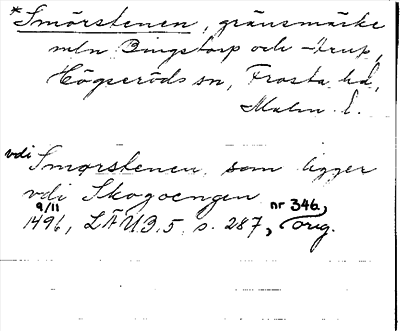 *Smörstenen, gränsmärke
mln Bingstorp och -trup,
Högseröds sn, Frosta hd,
Malm. l.
vdi Smørstenen, som ligger
vdi Skogoengen
9/11 nr 346,
1496, LÄUB, 5, s. 287, orig.